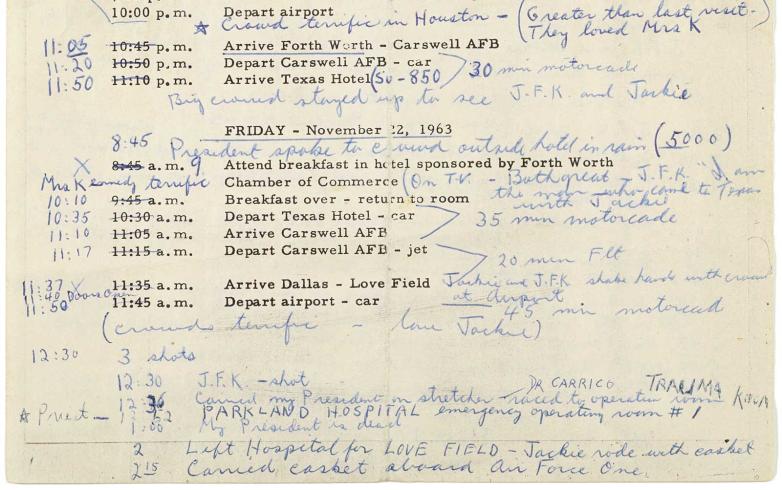 10:00 p.m. Depart airport (Greater than last visit.
★ Crowd terrific in Houston - They loved Mrs K
11:05 10:45 p.m. Arrive Forth Worth - Carswell AFB
11:20 10:50 p.m. Depart Carswell AFB - car 30 min motorcade
11:50 11:10 p.m. Arrive Texas Hotel (Su-850)
Big crowd stayed up to see J.F.K. and Jackie
FRIDAY - November 22, 1963
8:45 President spoke to crowd outside hotel in rain (5000)
X 8:45 a.m. 9 Attend breakfast in hotel sponsored by Forth Worth
Mrs Kennedy terrific Chamber of Commerce (On T.V. - Both great - J.F.K. "I am
the man who came to Texas
with Jackie
10:10 9:45 a.m. Breakfast over - return to room
10:35 10:30 a.m. Depart Texas Hotel - car 35 min motorcade
11:10 11:05 a.m. Arrive Carswell AFB
11:17 11:15 a.m. Depart Carswell AFB - jet
20 min Flt
11:37 X 11:35 a.m. Arrive Dallas - Love Field Jackie and J.F.K shake hands with crowd
11:40 Doors Open at airport
11:50 11:45 a.m. Depart airport - car 45 min motorcad
(crowds terrific - love Jackie)
12:30 3 shots
12:30 J.F.K. - shot DR CARRICO TRAUMA
12:36 Carried my President on stretcher - raced to operation room ROOM
★ Priest - PARKLAND HOSPITAL emergency operating room #1
1:00 My President is dead
2 Left Hospital for LOVE FIELD - Jackie rode with casket
2 15 Carried casket aboard Air Force One.